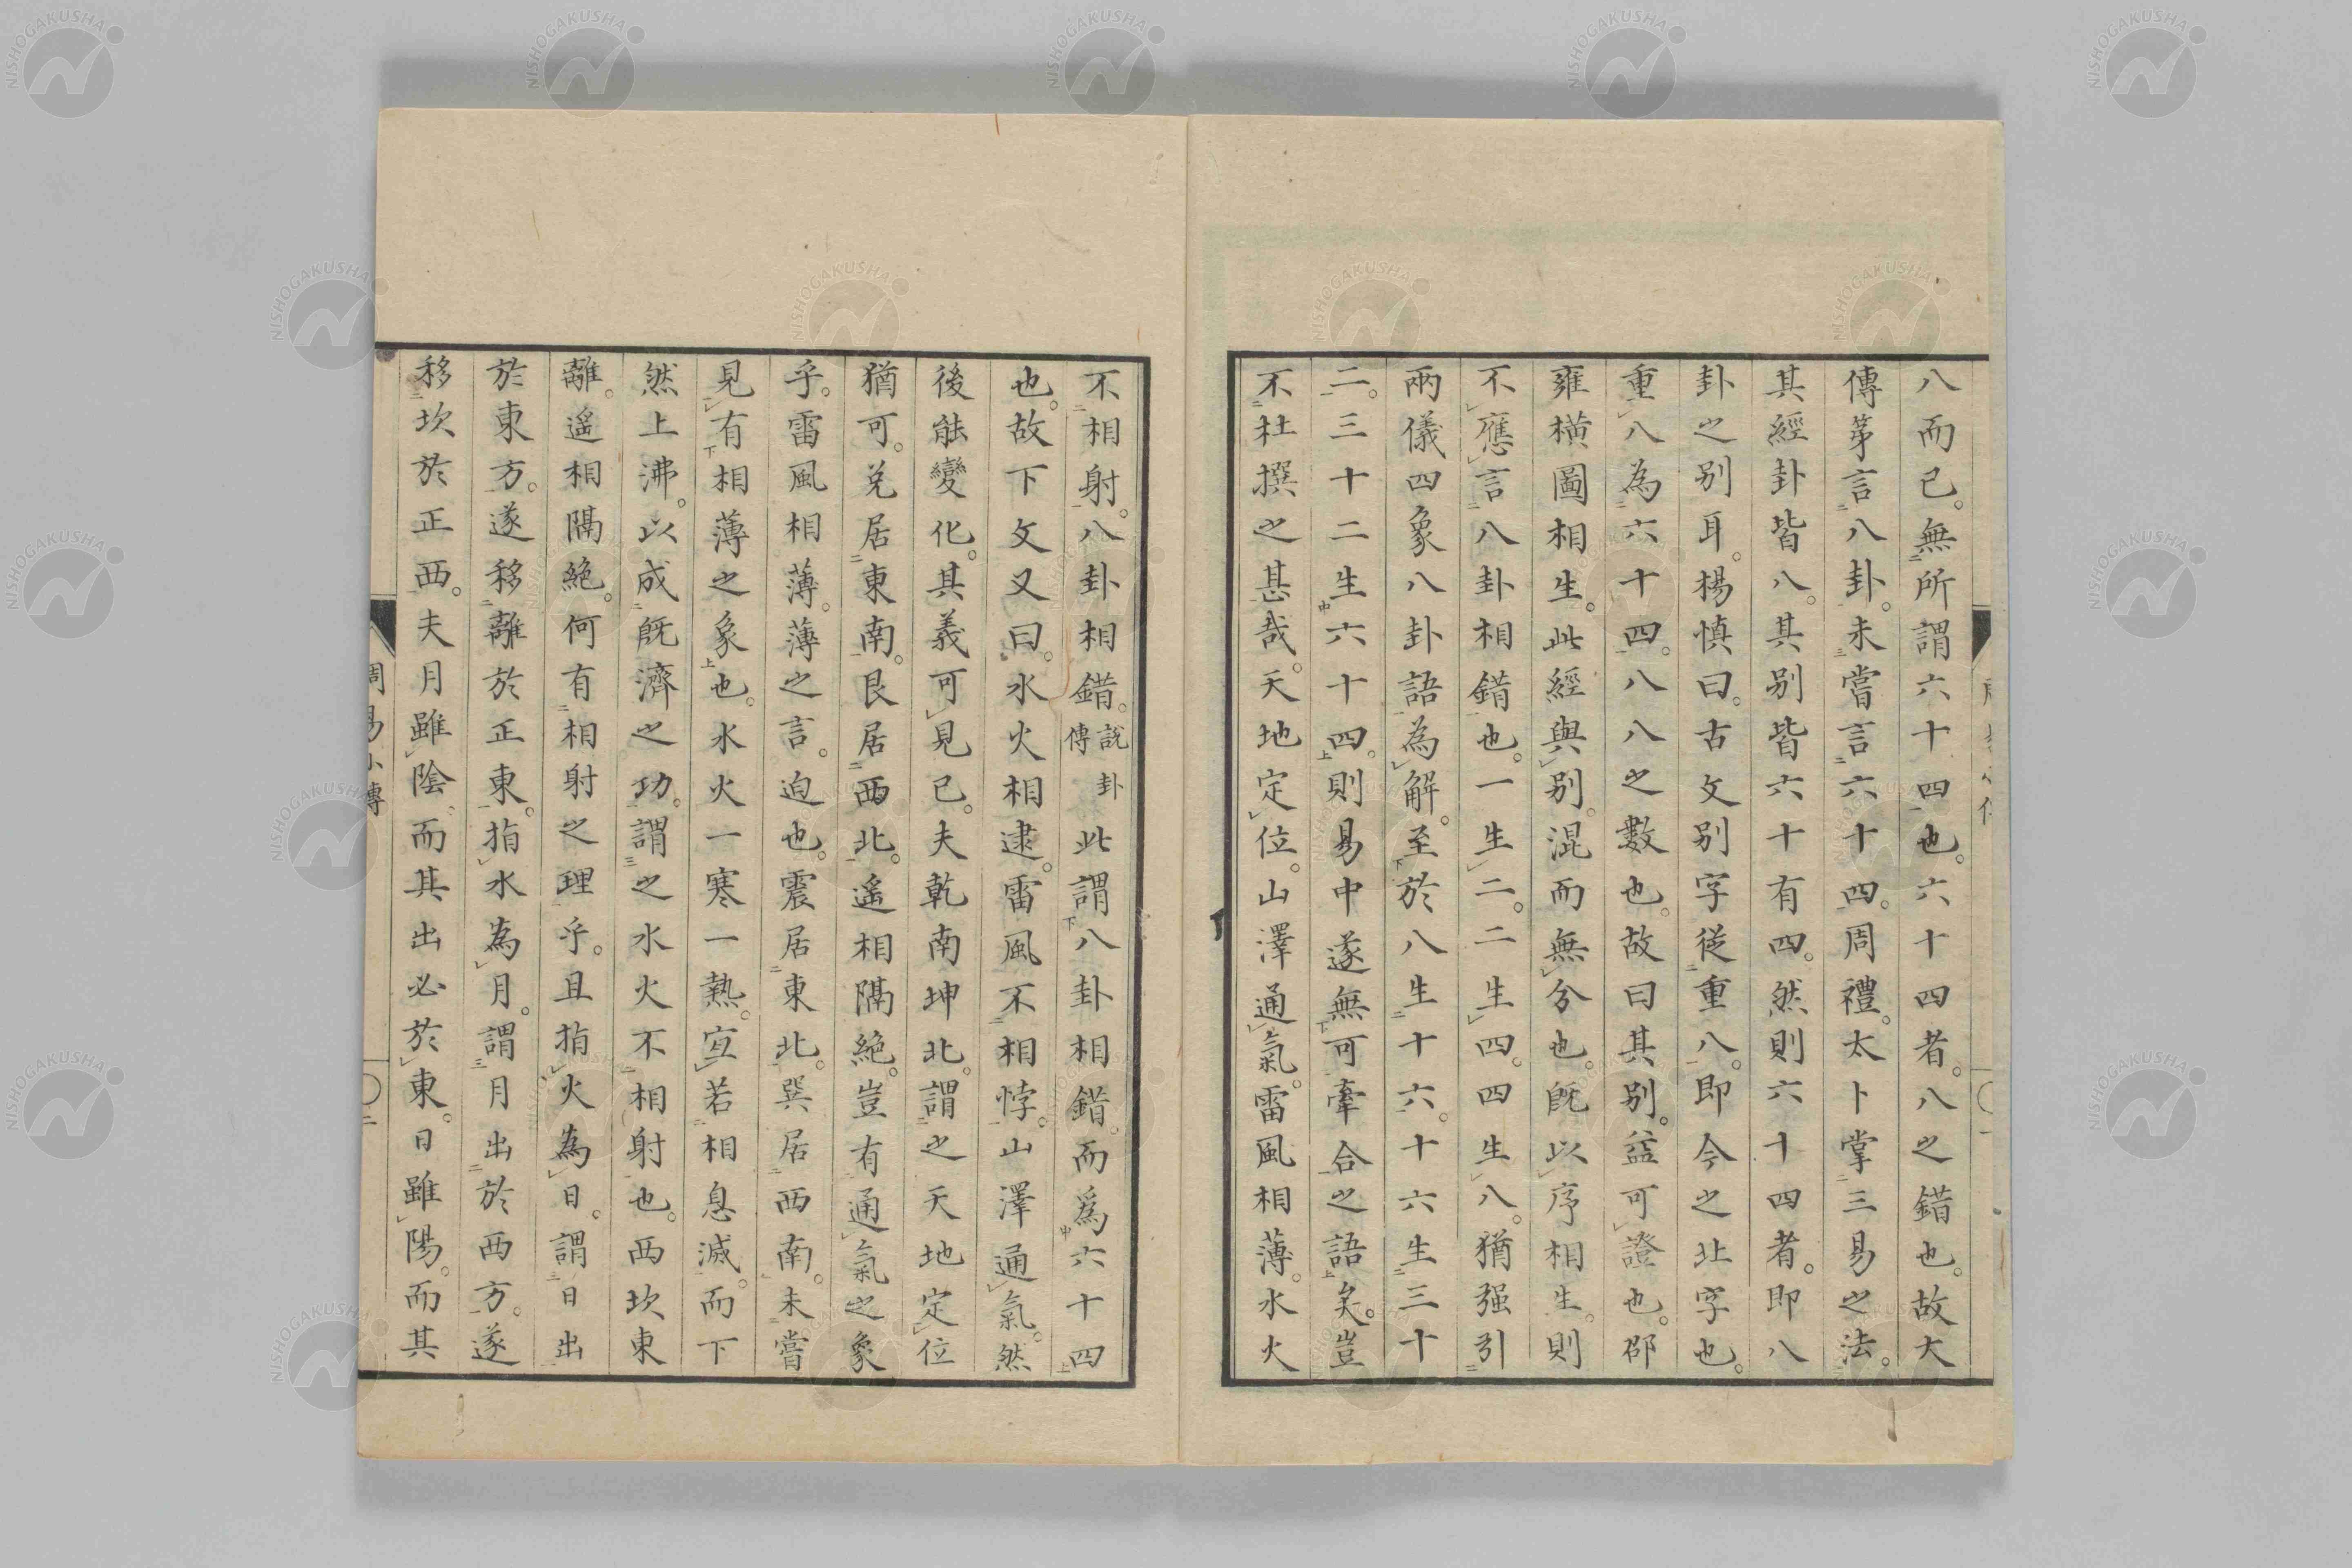 八而已。無所謂六十四也。六十四者。八之錯也。故大
傳第言八卦。未嘗言六十四。周禮。太卜掌三易之法。
其經卦皆八。其別皆六十有四。然則六十四者。即八
卦之別耳。楊慎曰。古文別字從重八。即今之北字也。
重八為六十四。八八之數也。故曰其別。益可證也。邵
雍橫圖相生。此經與別。混而無分也。既以序相生。則
不應言八卦相錯也。一生二。二生四。四生八。猶强引
兩儀四象八卦語為解。至於八生十六。十六生三十
二。三十二生六十四。則易中遂無可牽合之語矣。豈
不杜撰之甚哉。天地定位。山澤通氣。雷風相薄。水火
不相射。八卦相錯。說卦傳此謂八卦相錯。而爲六十四
也。故下文又曰。水火相逮。雷風不相悖。山澤通氣。然
後能變化。其義可見已。夫乾南坤北。謂之天地定位
猶可。兌居東南。艮居西北。遥相隔絶。豈有通氣之象
乎。雷風相薄。薄之言。迫也。震居東北。巽居西南。未嘗
見有相薄之象也。水火一寒一熱。宜若相息滅。而下
然上沸。以成既濟之功。謂之水火不相射也。西坎東
離。遥相隔絶。何有相射之理乎。且指火為日。謂日出
於東方。遂移離於正東。指水為月。謂月出於西方。遂
移坎於正西。夫月雖陰而其出必於東。日雖陽。而其
周易小傳
NISHOGAKUSHA